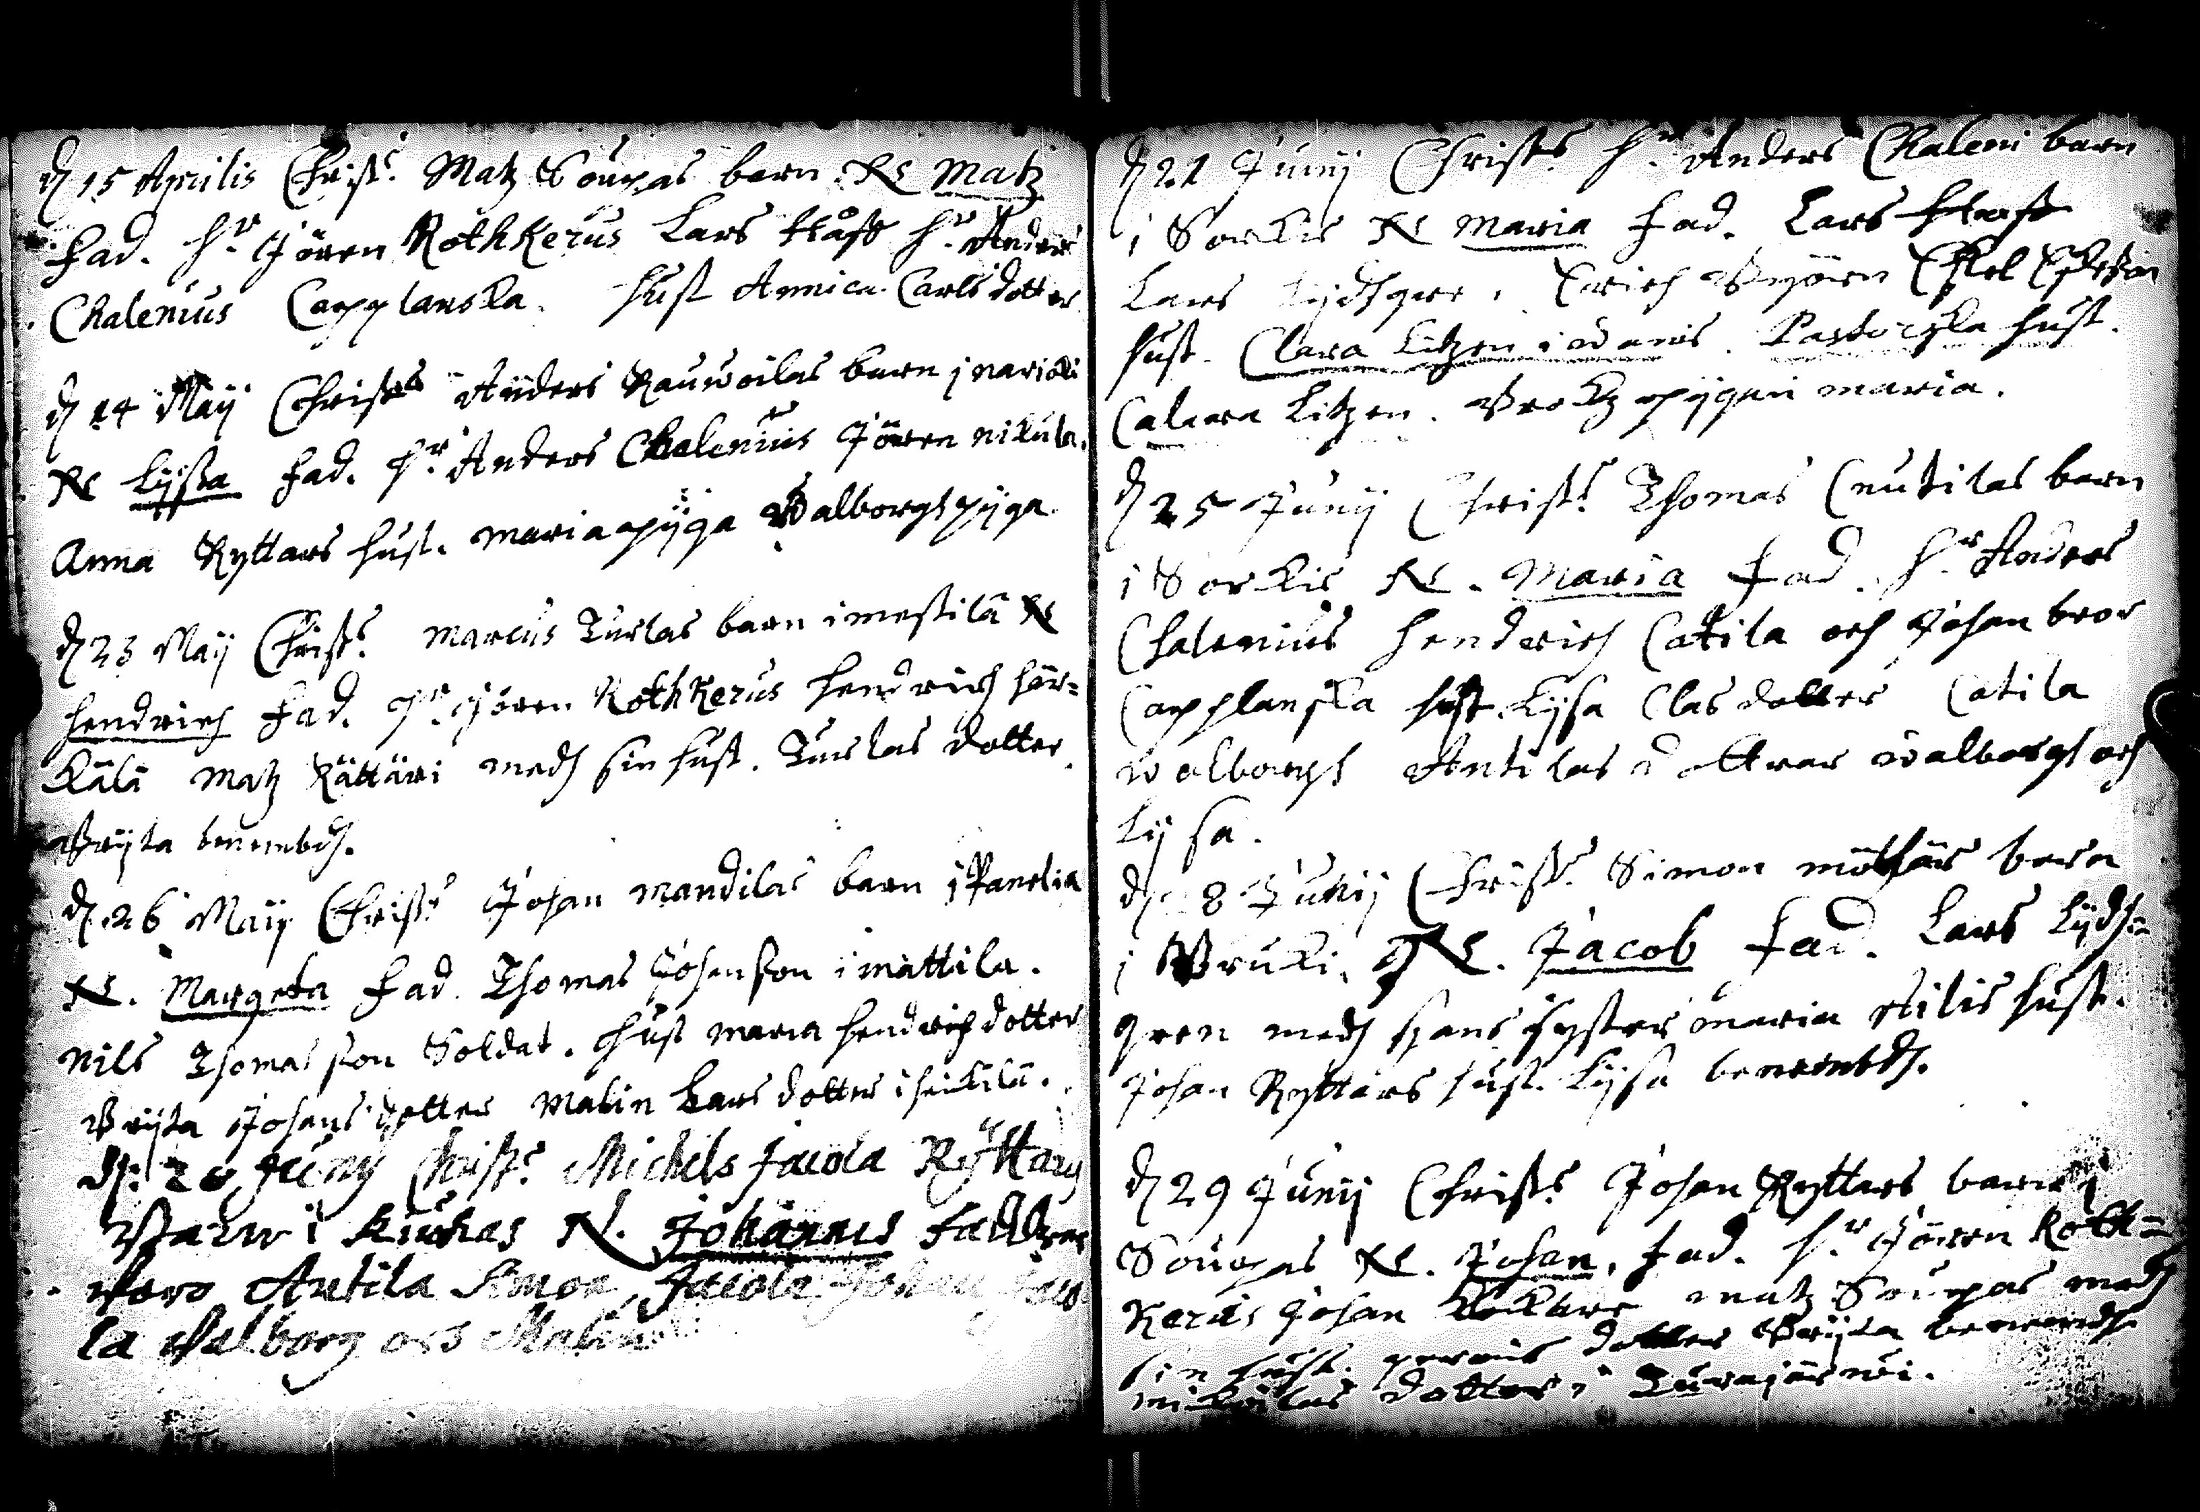 d 15 Aprilis Christ: Matz Soupas barn Ne Matz
Fad. Hr Jören Rothkerus Lars Kråft Hr Anders
Chalenius Capplanska. Hust Annica Carls dotter
d 14 Maij Christ: Anders Rauvoilas barn j
Ne Lijsa Fad. Hr Anders Chalenius Jören nikula.
Anna Ryttars hust. maria pijga Walborgh pijga.
d 23 Maij Christ: Marcus Turlas barn i mestilä Ne
hendrich Fad. Hr Jören Rothkerus hendrich här=
kälä Matz Rättäri medh sin hust. Turlas dotter
Brijta benembdh.
d. 26 Maij Christ: Johan mandilas barn j Panelia
Ne. Margeta Fad. Thomas Johanson i mattila.
nils Thomas son Soldat. Hust maria hendrich dotter
Brijta Johans dotter Malin Lars dotter i heikilä.
d: 20 Junij Christ: Michels Jacola Ryttars
Barn i Kiukas N. Johannes Faddrar
Antila Simon Jacola Johan Jaco
la Valborg och Malin
d 21 Junij Christ: Hr Anders Chaleni barn
i Sorkis Ne Maria Fad. Lars
Lars Lydhgre. Erich Biörn
hust. Clara Litzen i Pastorska hust.
Litzen. pijgan maria.
d 25 Junij Christ: Thomas Cnutilas barn
i Sorkis Ne. Maria Fad. Hr Anders
Chalenius hendrich Catila och Johan bror
Capplanska hust. Lijsa Clas dotter Catila
walborgh Antilas dottrar walborgh och
Lijsa.
d 28 Junij Christ: Simon barn
j Bruki. Ne. Jacob Fad. Lars Lijdh=
gren medh hans syster maria hust.
Johan Ryttars hust. Lijsa benembdh.
d 29 Junij Christ: Johan Ryttars barn j
Soupas Ne. Johan. Fad. Hr Jören Roth=
kerus Johan matz Soupas medh
sin hust. dotter Brijta benembdh
dotter i Turajärwi.